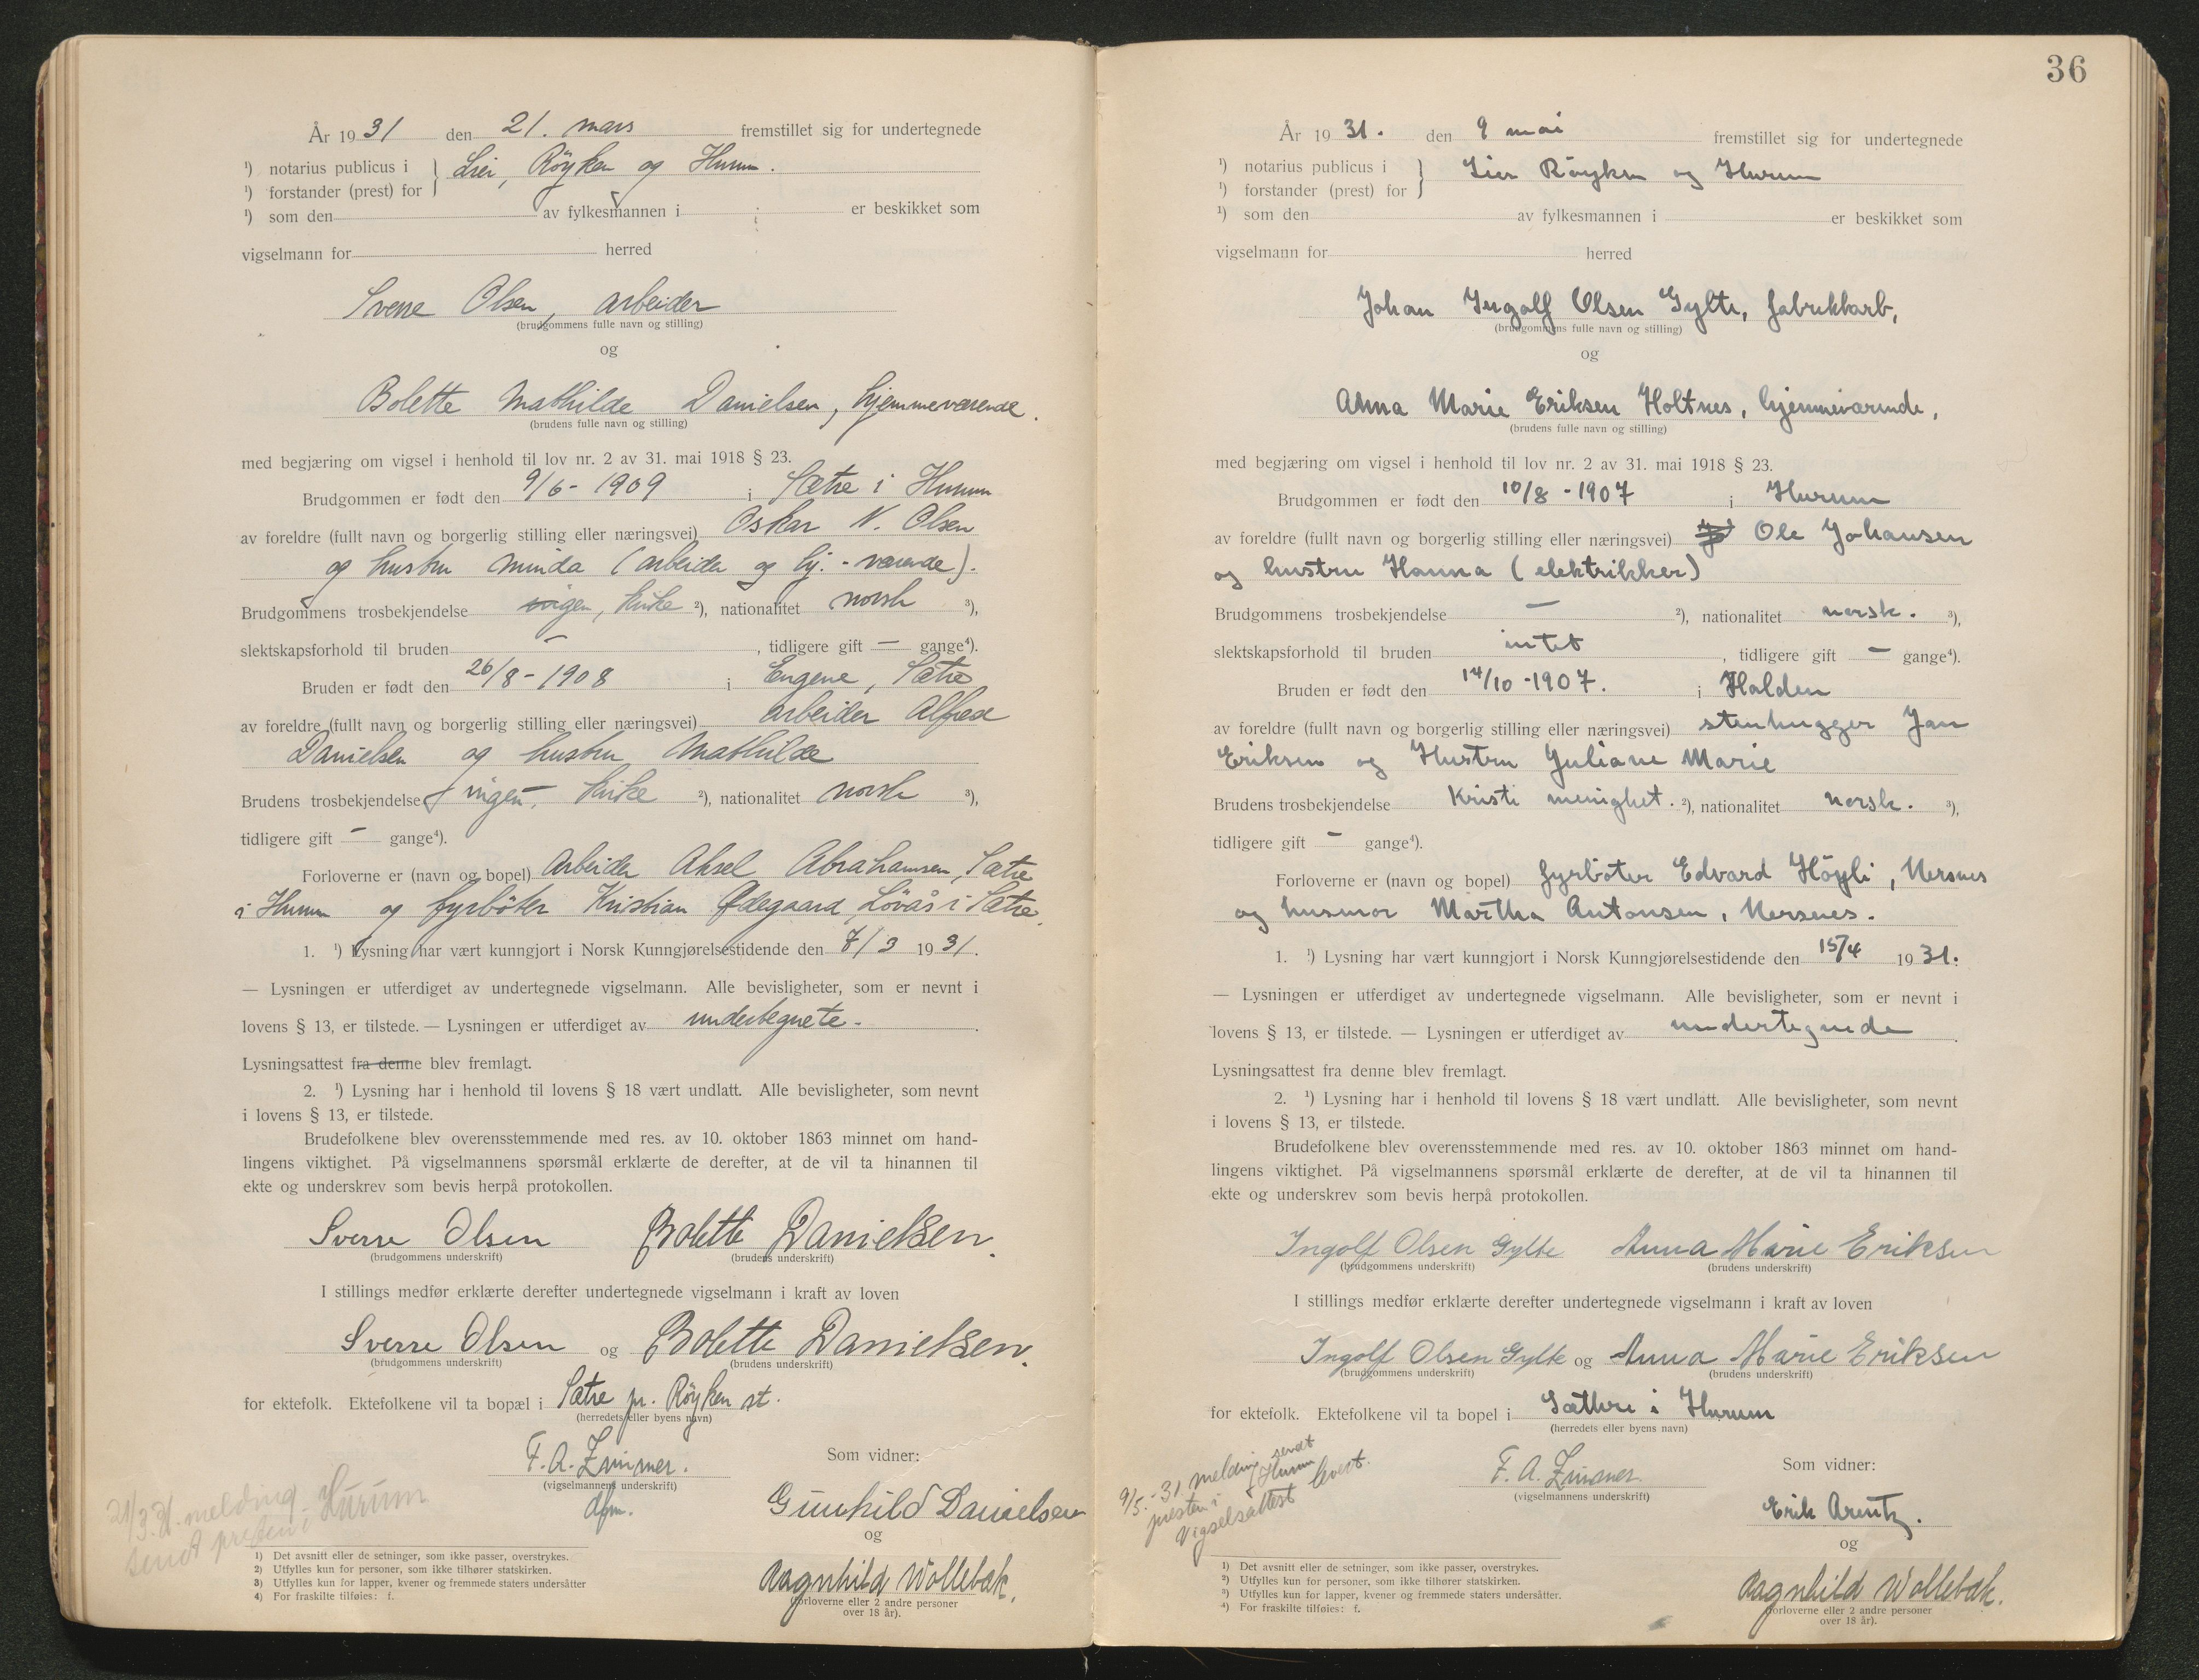 År 1931 den 21. mars fremstillet sig for undertegnede
¹) notarius publicus i } Lier, Röyken og Hurum.
¹) forstander (prest) for
¹) som den av fylkesmannen i er beskikket som
vigselmann for herred
Sverre Olsen, arbeider
(brudgommens fulle navn og stilling)
og
Bolette Mathilde Danielsen, hjemmeværende.
(brudens fulle navn og stilling)
med begjæring om vigsel i henhold til lov nr. 2 av 31. mai 1918 § 23.
Brudgommen er født den 9/6 - 1909 i Sætre i Hurum
av foreldre (fullt navn og borgerlig stilling eller næringsvei) Oskar N. Olsen
og hustru Minda (arbeider og hj.-værende).
Brudgommens trosbekjendelse ingen, kirke ²), nationalitet norsk ³),
slektskapsforhold til bruden — , tidligere gift — gange⁴).
Bruden er født den 26/8 - 1908 i Engene, Sætre
av foreldre (fullt navn og borgerlig stilling eller næringsvei) arbeider Alfred
Danielsen og hustru Mathilde
Brudens trosbekjendelse ingen, kirke ²), nationalitet norsk ³),
tidligere gift — gange⁴).
Forloverne er (navn og bopel) Arbeider Aksel Abrahamsen, Sætre
i Hurum og fyrböter Kristian Ødegaard, Lövås i Sætre.
1. ¹) Lysning har vært kunngjort i Norsk Kunngjørelsestidende den 7/3 1931.
— Lysningen er utferdiget av undertegnede vigselmann. Alle bevisligheter, som er nevnt i
lovens § 13, er tilstede. — Lysningen er utferdiget av undertegnete.
Lysningsattest fra denne blev fremlagt.
2. ¹) Lysning har i henhold til lovens § 18 vært undlatt. Alle bevisligheter, som nevnt
i lovens § 13, er tilstede.
Brudefolkene blev overensstemmende med res. av 10. oktober 1863 minnet om hand-
lingens viktighet. På vigselmannens spørsmål erklærte de derefter, at de vil ta hinannen til
ekte og underskrev som bevis herpå protokollen.
Sverre Olsen Bolette Danielsen.
(brudgommens underskrift) (brudens underskrift)
I stillings medfør erklærte derefter undertegnede vigselmann i kraft av loven
Sverre Olsen og Bolette Danielsen.
(brudgommens underskrift) (brudens underskrift)
for ektefolk. Ektefolkene vil ta bopæl i Sætre pr. Röyken st.
(herredets eller byens navn)
F. A. Zimmer. Som vidner:
(vigselmannens underskrift)
dfm.
Gunhild Danielsen
og
Ragnhild Wollebæk.
(forloverne eller 2 andre personer
over 18 år).
21/3.31. melding
sendt presten i Hurum
1) Det avsnitt eller de setninger, som ikke passer, overstrykes.
2) Utfylles kun for personer, som ikke tilhører statskirken.
3) Utfylles kun for lapper, kvener og fremmede staters undersåtter
4) For fraskilte tilføies: f.
36
År 1931. den 9 mai fremstillet sig for undertegnede
¹) notarius publicus i } Lier Röyken og Hurum
¹) forstander (prest) for
¹) som den av fylkesmannen i er beskikket som
vigselmann for herred
Johan Ingolf Olsen Gylte, fabrikkarb,
(brudgommens fulle navn og stilling)
og
Anna Marie Eriksen Holtnes, hjemmeværende,
(brudens fulle navn og stilling)
med begjæring om vigsel i henhold til lov nr. 2 av 31. mai 1918 § 23.
Brudgommen er født den 10/8 - 1907 i Hurum
av foreldre (fullt navn og borgerlig stilling eller næringsvei) Ole Johansen
og hustru Hanna (elektrikker)
Brudgommens trosbekjendelse — ²), nationalitet norsk. ³),
slektskapsforhold til bruden intet , tidligere gift — gange⁴).
Bruden er født den 14/10 - 1907. i Halden
av foreldre (fullt navn og borgerlig stilling eller næringsvei) stenhugger Jan
Eriksen og Hustru Juliane Marie
Brudens trosbekjendelse Kristi menighet. ²), nationalitet norsk. ³),
tidligere gift — gange⁴).
Forloverne er (navn og bopel) fyrböter Edvard Höyli, Nersnes
og husmor Martha Antonsen, Nersnes.
1. ¹) Lysning har vært kunngjort i Norsk Kunngjørelsestidende den 15/4 1931.
— Lysningen er utferdiget av undertegnede vigselmann. Alle bevisligheter, som er nevnt i
lovens § 13, er tilstede. — Lysningen er utferdiget av undertegnede.
Lysningsattest fra denne blev fremlagt.
2. ¹) Lysning har i henhold til lovens § 18 vært undlatt. Alle bevisligheter, som nevnt
i lovens § 13, er tilstede.
Brudefolkene blev overensstemmende med res. av 10. oktober 1863 minnet om hand-
lingens viktighet. På vigselmannens spørsmål erklærte de derefter, at de vil ta hinannen til
ekte og underskrev som bevis herpå protokollen.
Ingolf Olsen Gylte Anna Marie Eriksen
(brudgommens underskrift) (brudens underskrift)
I stillings medfør erklærte derefter undertegnede vigselmann i kraft av loven
Ingolf Olsen Gylte og Anna Marie Eriksen
(brudgommens underskrift) (brudens underskrift)
for ektefolk. Ektefolkene vil ta bopel i Sæthre i Hurum
(herredets eller byens navn)
9/5.-31. melding sendt
presten i Hurum
Vigselsattest levert.
F. A. Zimmer. Som vidner:
(vigselmannens underskrift)
Erik Arentz.
og
Ragnhild Wollebæk.
(forloverne eller 2 andre personer
over 18 år).
1) Det avsnitt eller de setninger, som ikke passer, overstrykes.
2) Utfylles kun for personer, som ikke tilhører statskirken.
3) Utfylles kun for lapper, kvener og fremmede staters undersåtter.
4) For fraskilte tilføies: f.